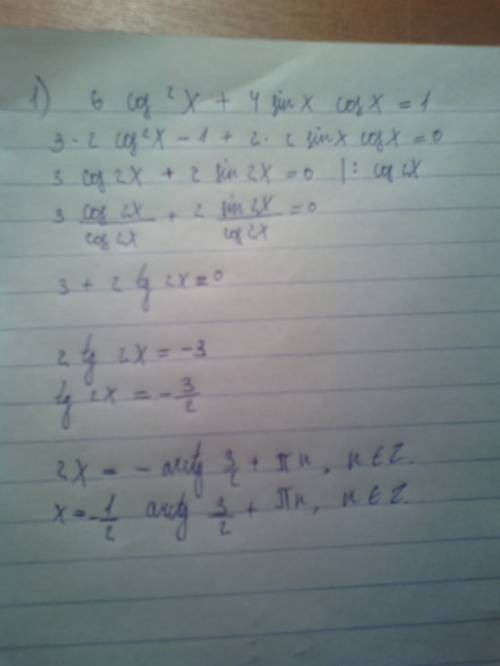 1) 6 cos²x + 4 sinx cosx = 1
3·2 cos²x - 1 + 2·2 sinx cosx = 0
3 cos2x + 2 sin2x = 0 |: cos2x
3 cos2x/cos2x + 2 sin2x/cos2x = 0
3 + 2 tg 2x = 0
2 tg 2x = -3
tg 2x = -3/2
2x = - arctg 3/2 + πn, n∈Z.
x = -1/2 arctg 3/2 + πn, n∈Z.